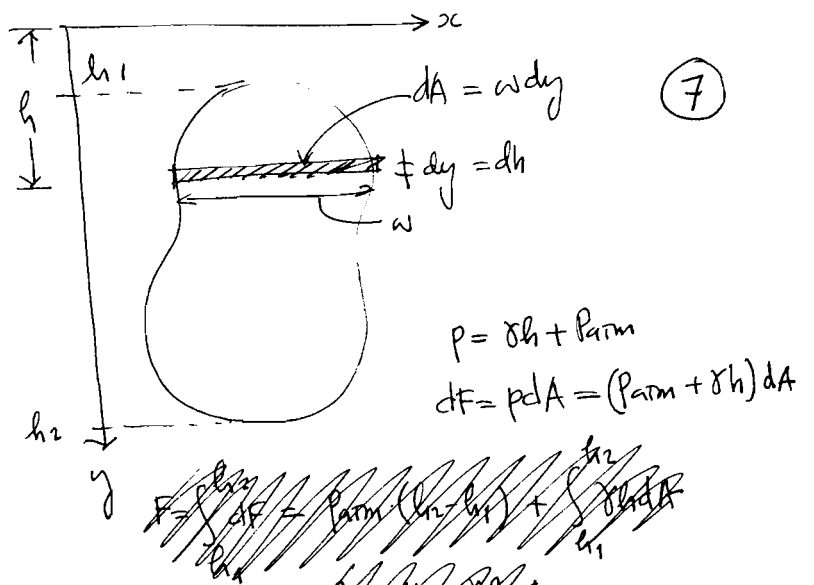 x
h1
h
dA = wdy
7
dy = dh
w
p = γh + Patm
dF = pdA = (Patm + γh) dA
h2
y
F = ∫ dF = Patm (h2 - h1) + ∫ γh dA
h2
h1
h2
h1